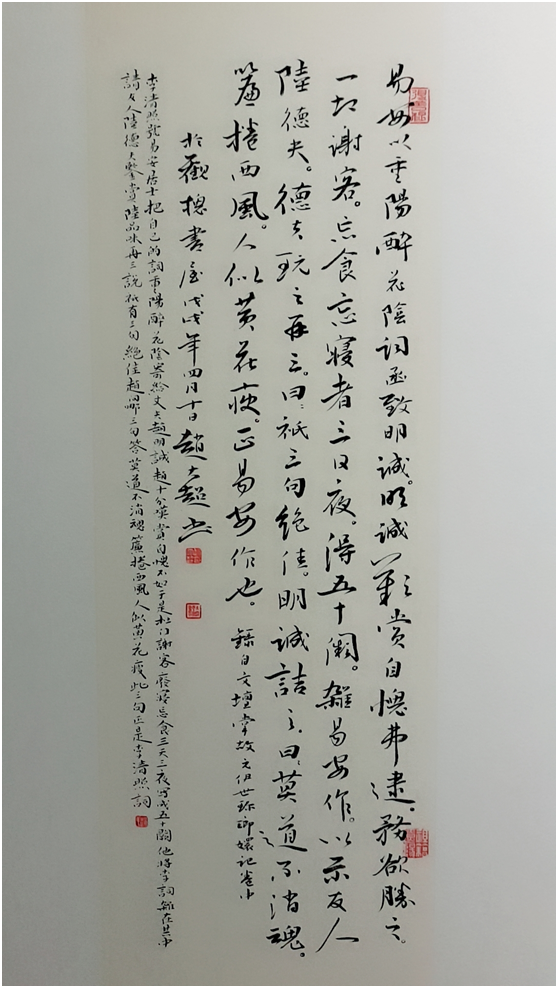 易安以重陽醉花陰詞函致明誠。明誠歎賞自愧弗逮、務欲勝之。
一切謝客。忘食忘寢者三日夜。得五十闋。雜易安作。以示友人
陸德夫。德夫玩之再三。曰：祇三句絶佳。明誠詰之、曰：莫道不消魂。
簾捲西風。人似黃花瘦。正易安作也。錄自文壇掌故元伊世珍瑯嬛記卷中
於觀樓書屋戊戌年四月十日趙大超書
李清照號易安居士把自己的詞重陽醉花陰寄給丈夫趙明誠趙十分嘆賞自愧不如于是杜門謝客廢寢忘食三天三夜寫成五十闋他將李詞雜在其中
請友人陸德夫鑒賞陸品味再三說祇有三句絕佳趙問哪三句答莫道不消魂簾捲西風人似黃花瘦此三句正是李清照詞